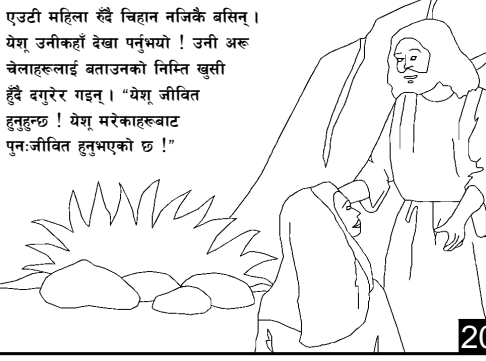 एउटी महिला रुँदै चिहान नजिकै बसिन् ।
येशू उनीकहाँ देखा पर्नुभयो ! उनी अरू
चेलाहरूलाई बताउनको निम्ति खुसी
हुँदै दगुरेर गइन् । “येशू जीवित
हुनुहुन्छ ! येशू मरेकाहरूबाट
पुनःजीवित हुनुभएको छ !”
20